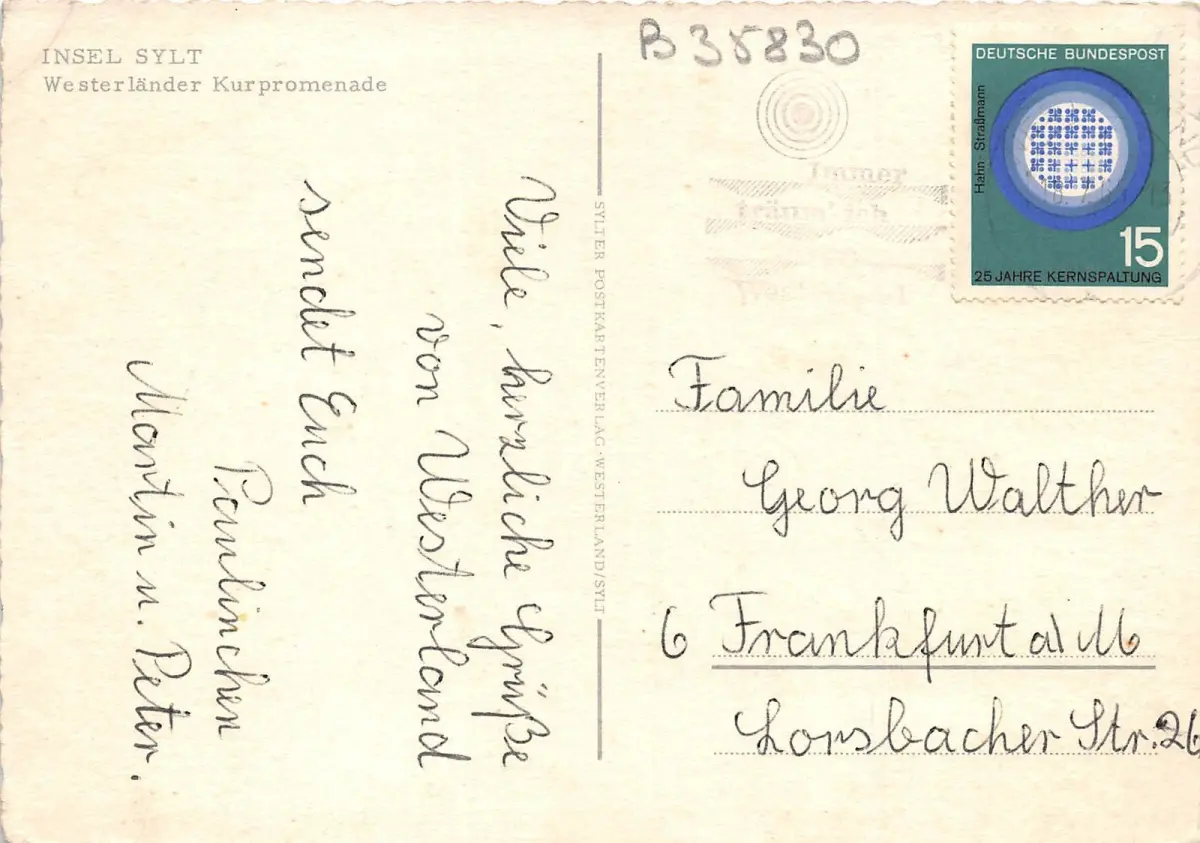 INSEL SYLT
Westerländer Kurpromenade
Viele, herzliche Grüße
von Westerland
sendet Euch
Paulinchen
Martin u. Peter.
SYLTER POSTKARTENVERLAG · WESTERLAND/SYLT
B 35830
Immer
träum' ich
DEUTSCHE BUNDESPOST
Hahn - Straßmann
15
25 JAHRE KERNSPALTUNG
Familie
Georg Walther
6 Frankfurt a/M
Lorsbacher Str. 26